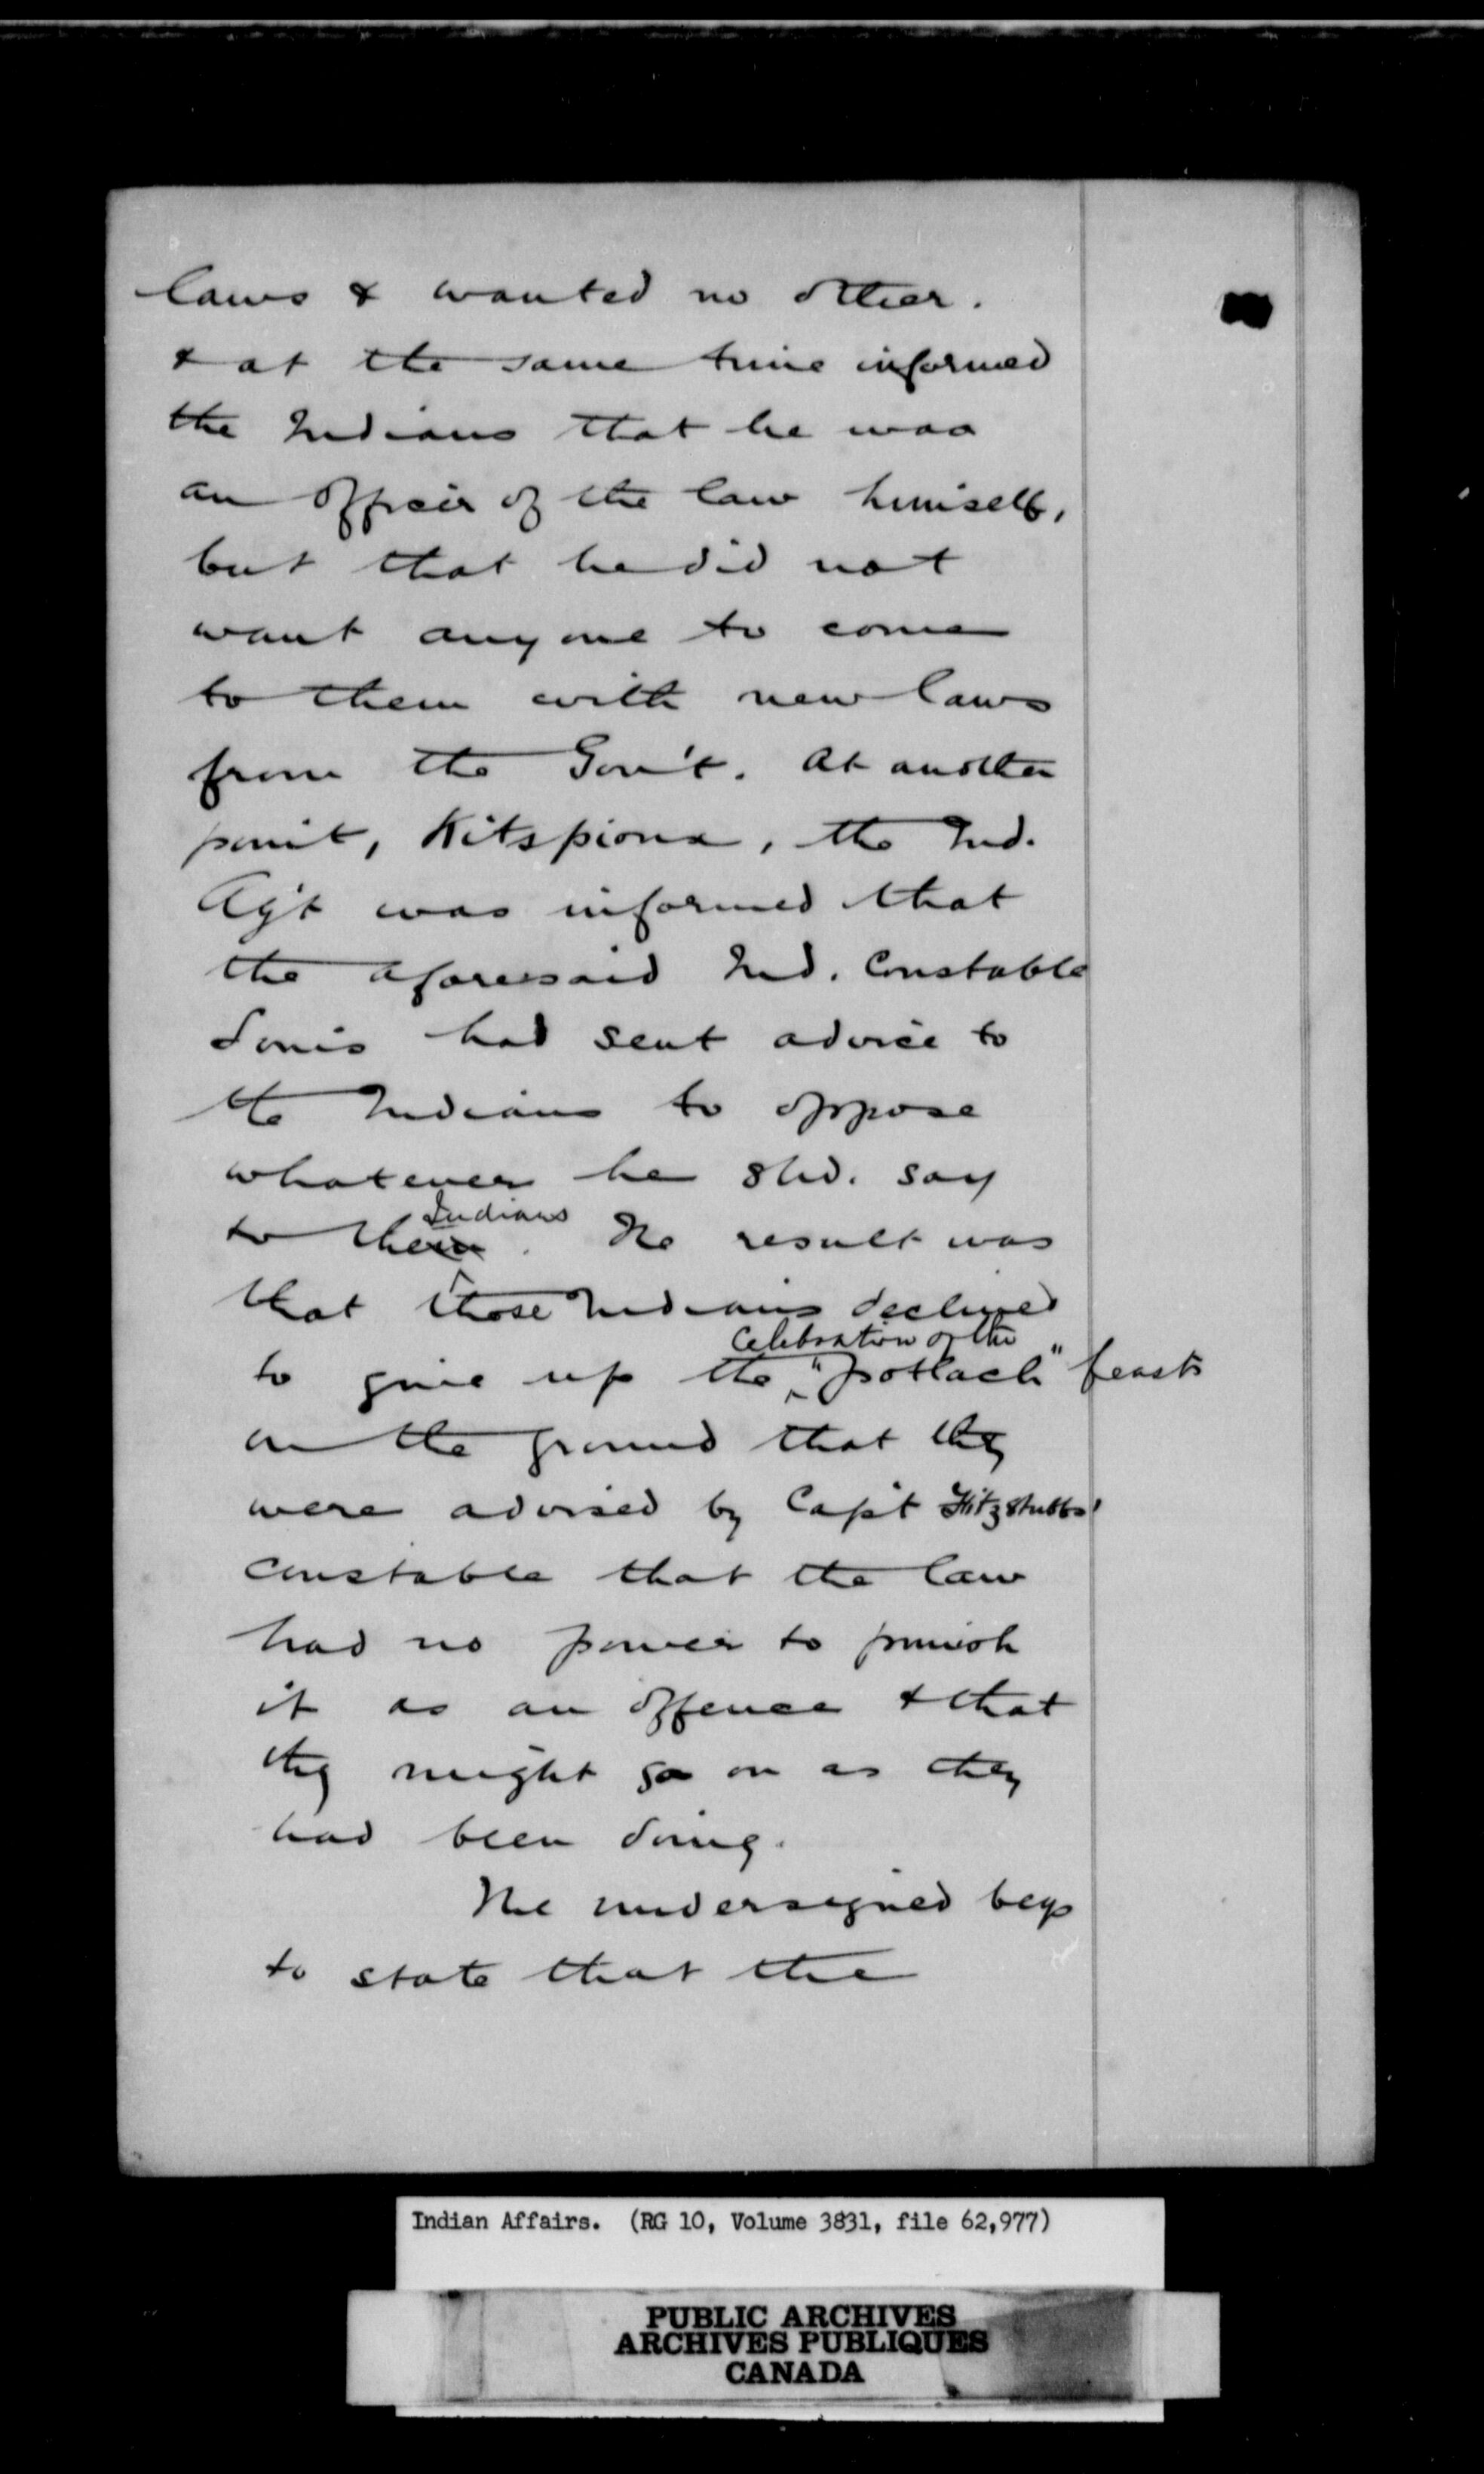 laws & wanted no other.
& at the same time informed
the Indians that he was
an officer of the law himself,
but that he did not
want anyone to come
to them with new laws
from the Gov't. At another
point, Kitspioux, the Ind.
Ag't was informed that
the aforesaid Ind. Constable
Louis had sent advice to
the Indians to oppose
whatever he shd. say
Indians
to them. The result was
that those Indians declined
Celebration of the
to give up the "potlach" feasts
on the ground that they
were advised by Capt Fitzstubbs'
constable that the law
had no power to punish
it as an offence & that
they might go on as they
had been doing.
The undersigned begs
to state that the
Indian Affairs. (RG 10, Volume 3831, file 62,977)
PUBLIC ARCHIVES
ARCHIVES PUBLIQUES
CANADA